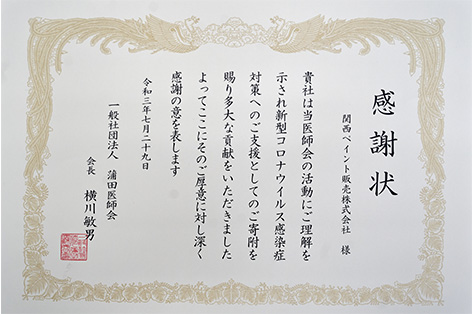 感謝状
関西ペイント販売株式会社 様
貴社は当医師会の活動にご理解を
示され新型コロナウイルス感染症
対策へのご支援としてのご寄附を
賜り多大な貢献をいただきました
よってここにそのご厚意に対し深く
感謝の意を表します
令和三年七月二十九日
一般社団法人 蒲田医師会
会長 横川敏男